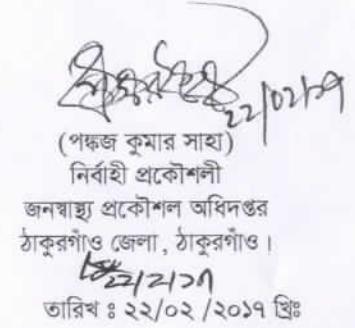 ২২/০২/১৭
(পঙ্কজ কুমার সাহা)
নির্বাহী প্রকৌশলী
জনস্বাস্থ্য প্রকৌশল অধিদপ্তর
ঠাকুরগাঁও জেলা , ঠাকুরগাঁও ।
২২/২/১৭
তারিখ ঃ ২২/০২ /২০১৭ খ্রিঃ